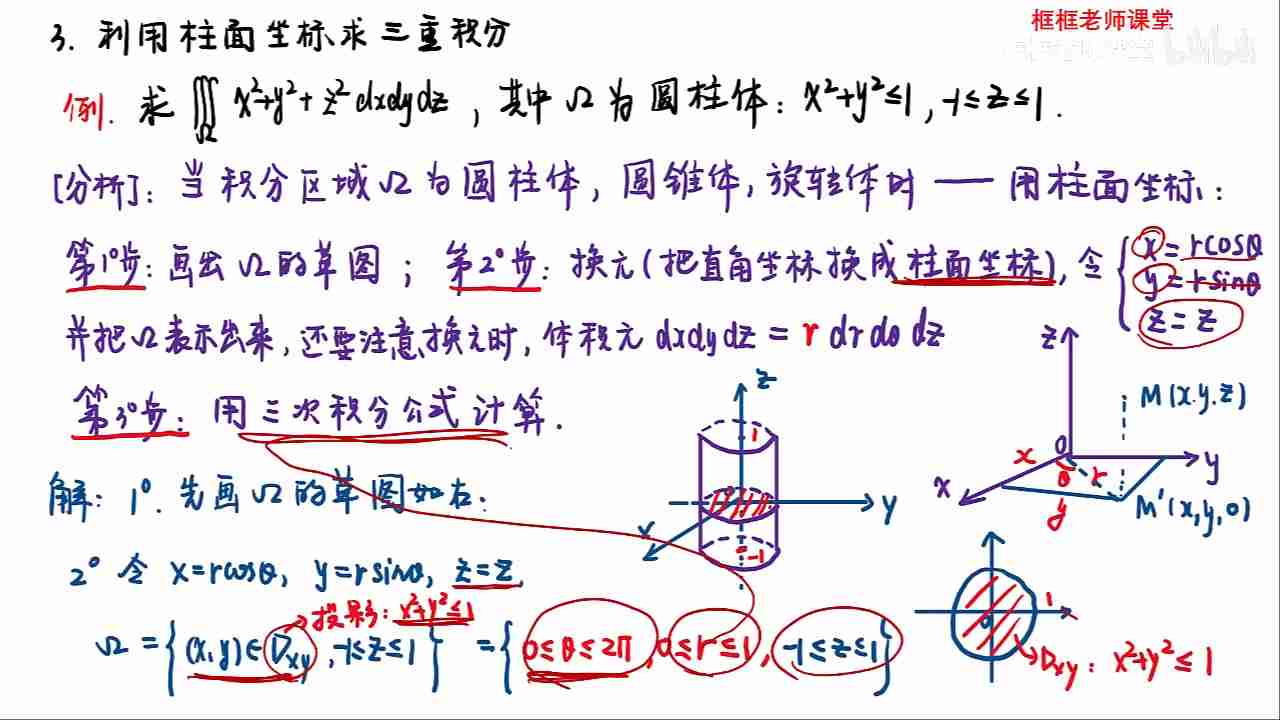 框框老师课堂
3. 利用柱面坐标求三重积分
例. 求 ∭Ω x²+y²+z² dxdydz , 其中Ω为圆柱体: x²+y²≤1, -1≤z≤1.
[分析]: 当积分区域Ω为圆柱体, 圆锥体, 旋转体时 —— 用柱面坐标:
第1°步: 画出Ω的草图; 第2°步: 换元(把直角坐标换成柱面坐标), 令 { x=rcosθ
y=rsinθ
z=z
并把Ω表示出来, 还要注意换元时, 体积元 dxdydz = r dr dθ dz
第3°步: 用三次积分公式计算.
z
1
y
x
-1
z
M(x.y.z)
0
x
θ
r
y
x
y
M'(x,y,0)
解: 1°. 先画Ω的草图如右:
2° 令 x=rcosθ, y=rsinθ, z=z,
→投影: x²+y²≤1
Ω = { (x,y)∈Dxy, -1≤z≤1 } = { 0≤θ≤2π, 0≤r≤1, -1≤z≤1 }
1
0
Dxy: x²+y²≤1